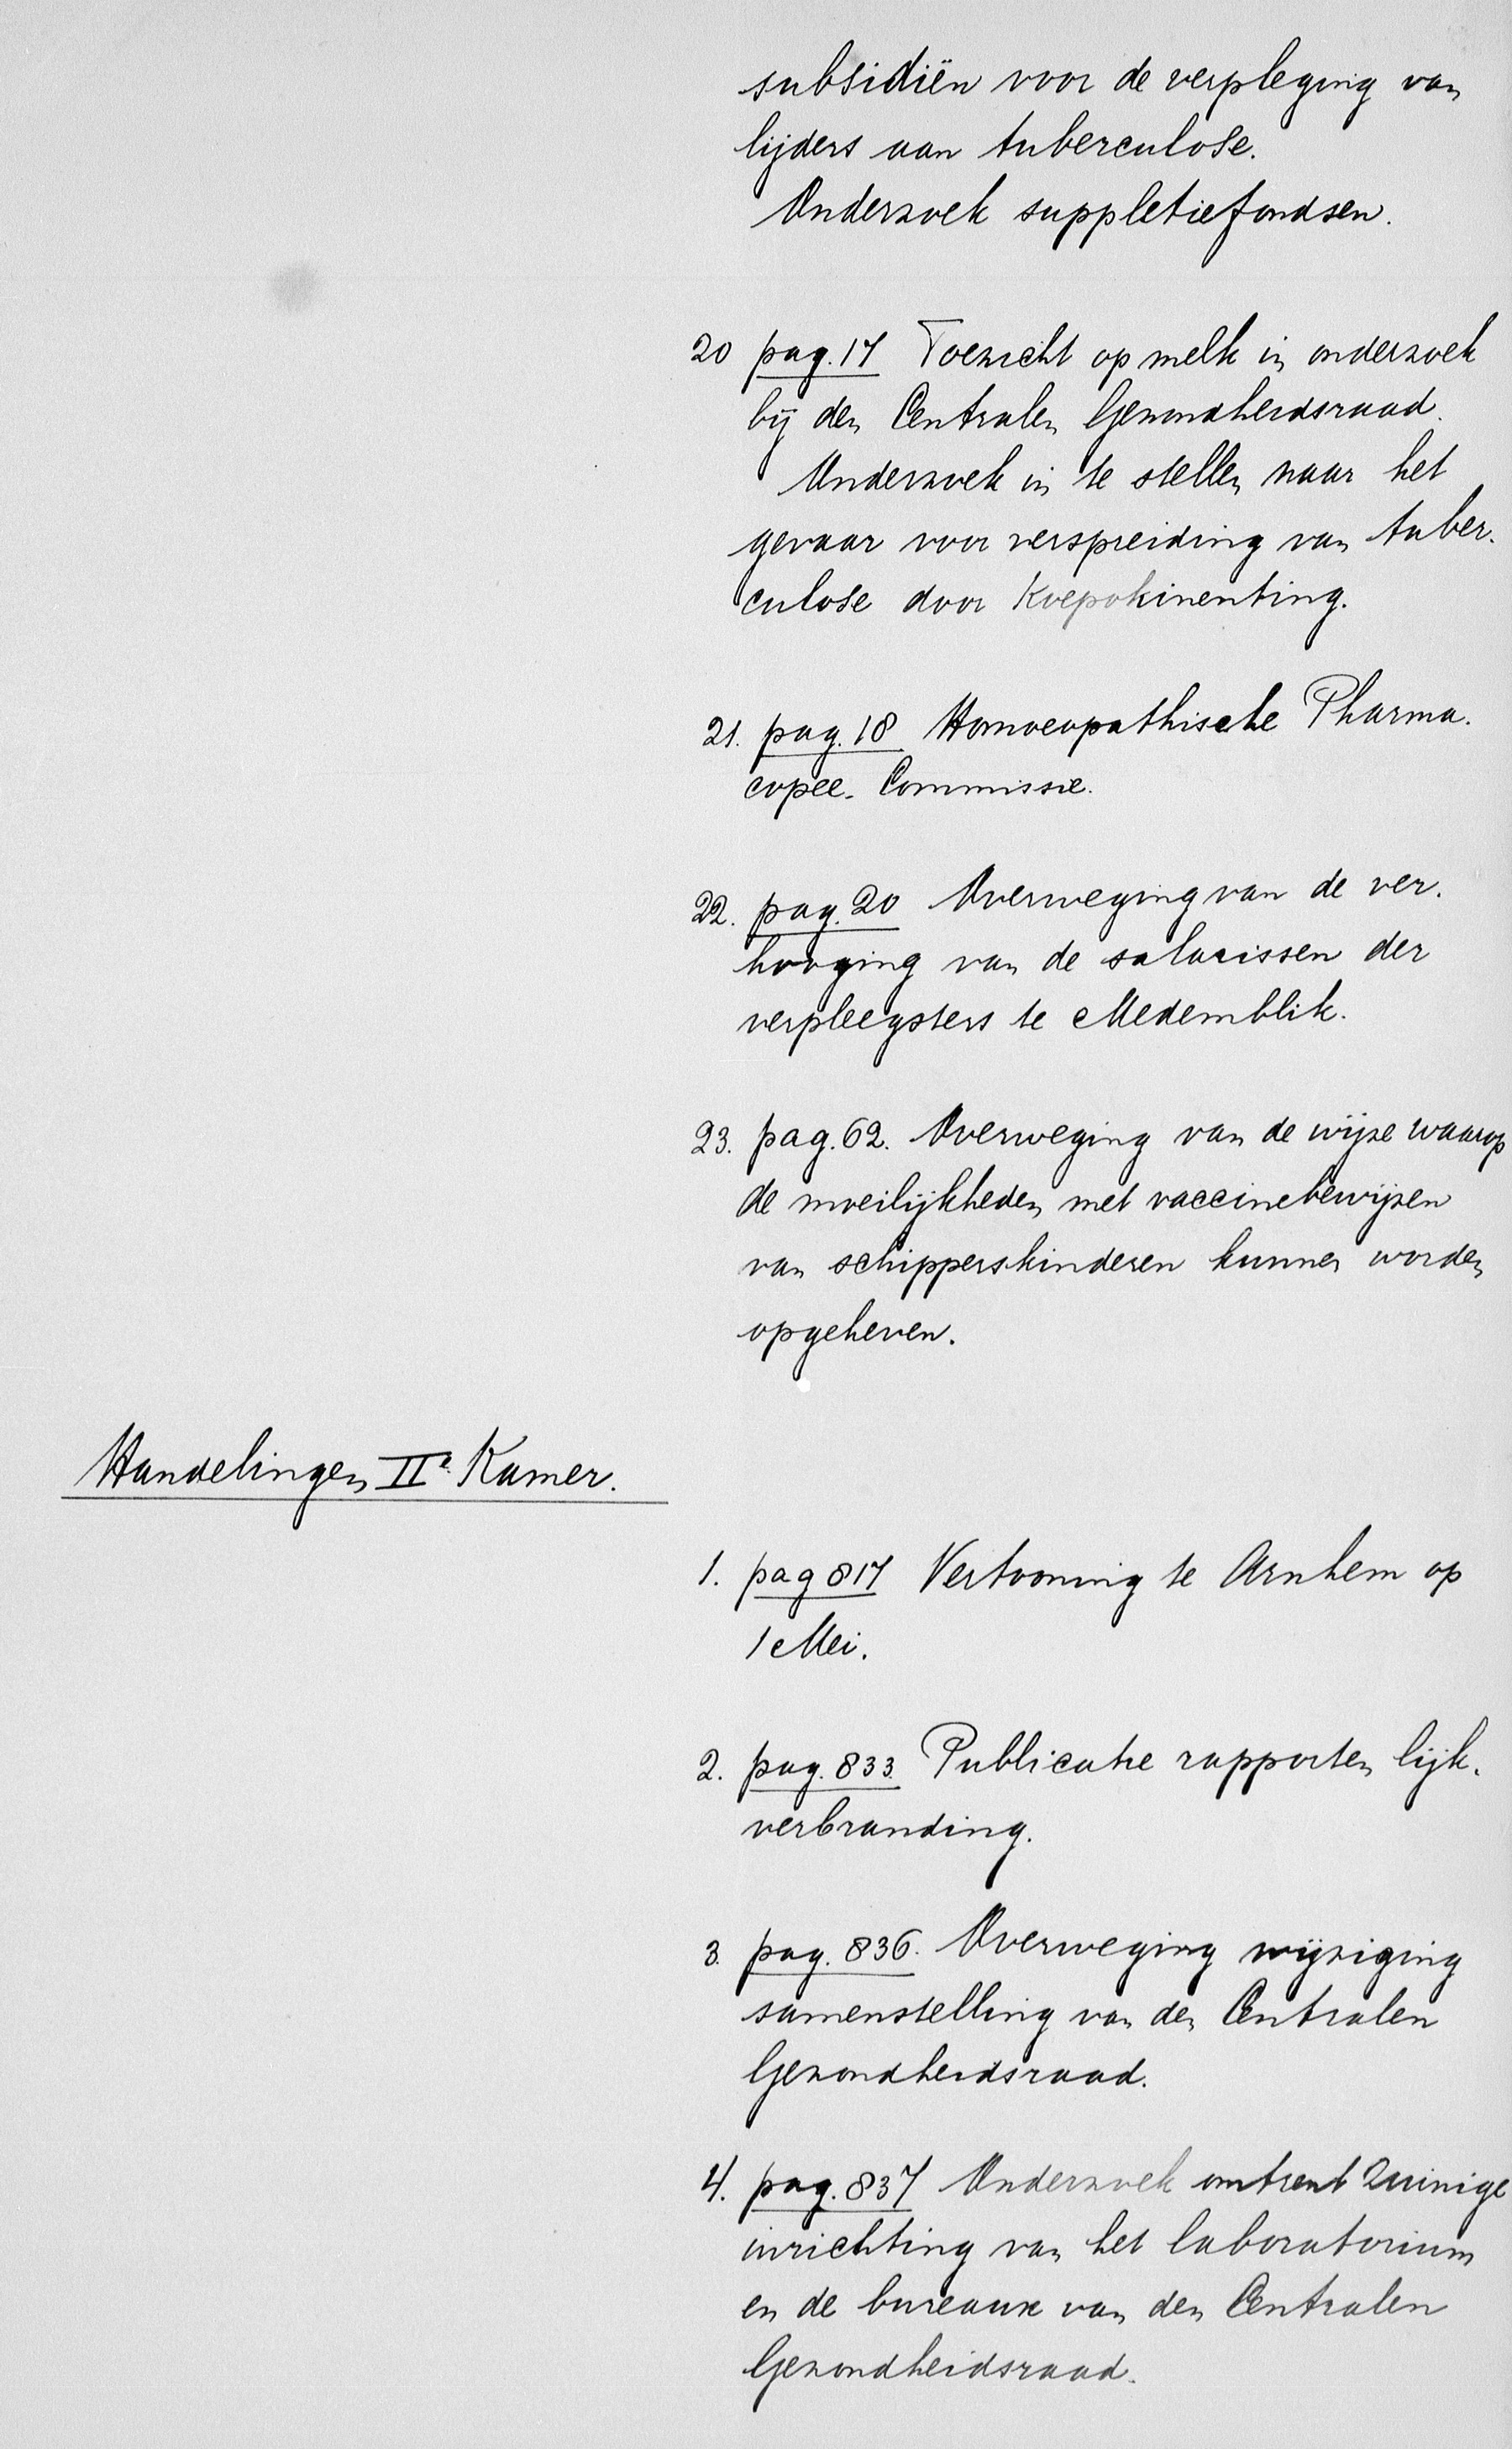 subsidiën voor de verpleging van
lijders aan tuberculose.
Onderzoek suppletiefondsen.
20 pag. 17 Toezicht op melk in onderzoek
bij den Centralen Gezondheidsraad.
Onderzoek in te stellen naar het
gevaar voor verspreiding van tuber-
culose door Koepokinenting.
21. pag. 18 Homoeopathische Pharma-
copee-Commissie.
22. pag. 20 Overweging van de ver-
hooging van de salarissen der
verpleegsters te Medemblik.
23. pag. 62. Overweging van de wijze waarop
de moeilijkheden met vaccinebewijzen
van schipperskinderen kunnen worden
opgeheven.
Handelingen IIe Kamer.
1. pag 817 Vertooning te Arnhem op
1 Mei.
2. pag. 833. Publicatie rapporten lijk-
verbranding.
3. pag. 836. Overweging wijziging
samenstelling van den Centralen
Gezondheidsraad.
4. pag. 837 Onderzoek omtrent zuinige
inrichting van het laboratorium
en de bureaux van den Centralen
Gezondheidsraad.